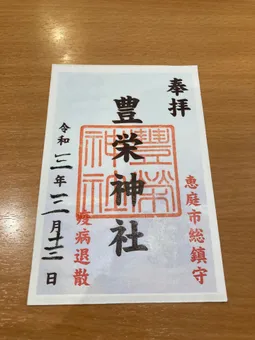 奉拝
恵庭市総鎮守
豊栄神社
豊榮神社
疫病退散
令和三年三月十三日